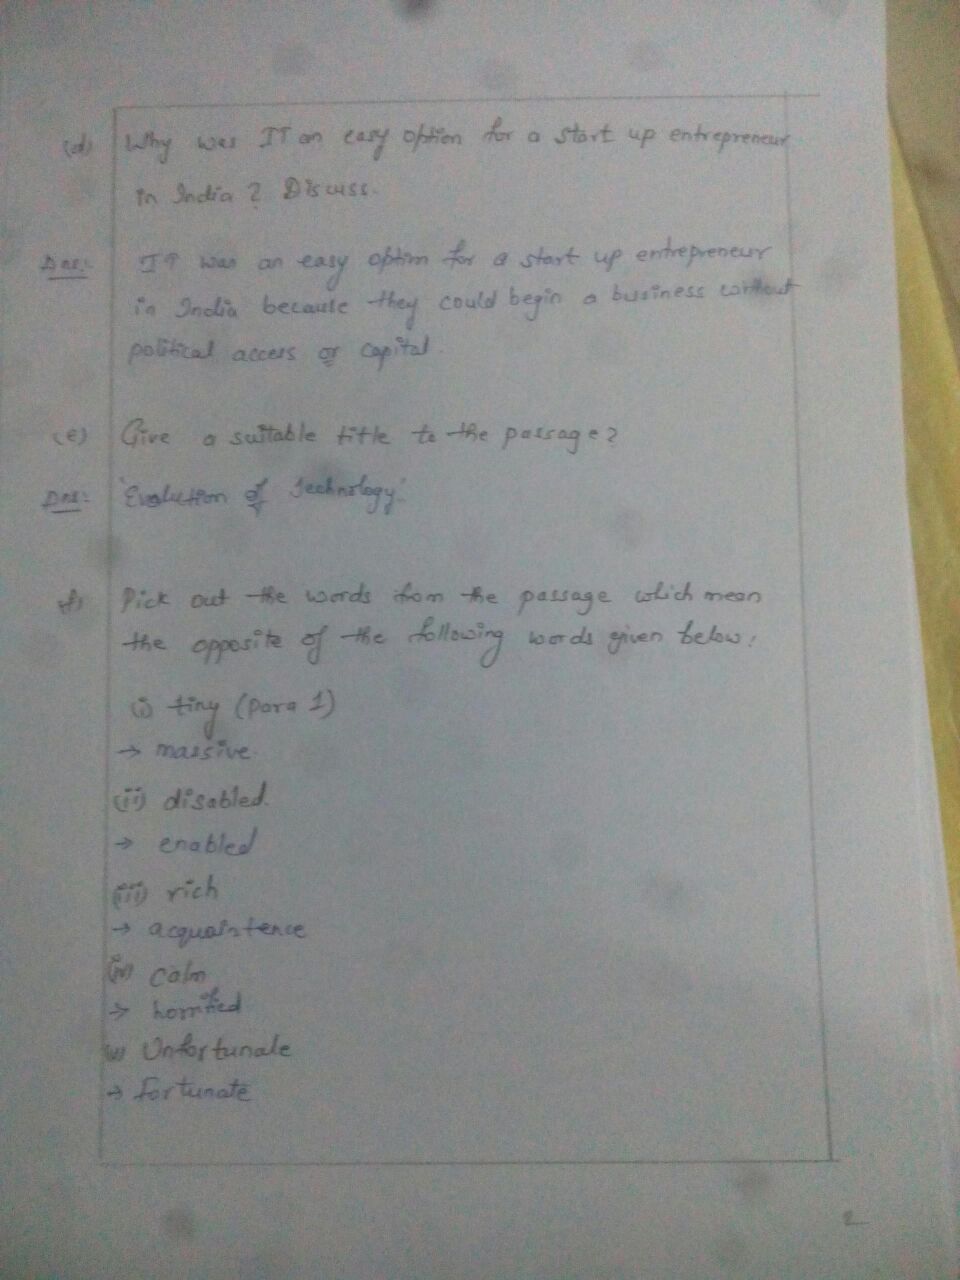 (d) Why was IT an easy option for a start up entrepreneur
in India? Discuss.
Ans: IT was an easy option for a start up entrepreneur
in India because they could begin a business without
political access or capital.
(e) Give a suitable title to the passage?
Ans: 'Evolution of Technology'.
f) Pick out the words from the passage which mean
the opposite of the following words given below:
(i) tiny (Para 1)
→ massive.
(ii) disabled.
→ enabled
(iii) rich
→ acquaintence
(iv) calm
→ horrified
v) Unfortunate
→ fortunate
2